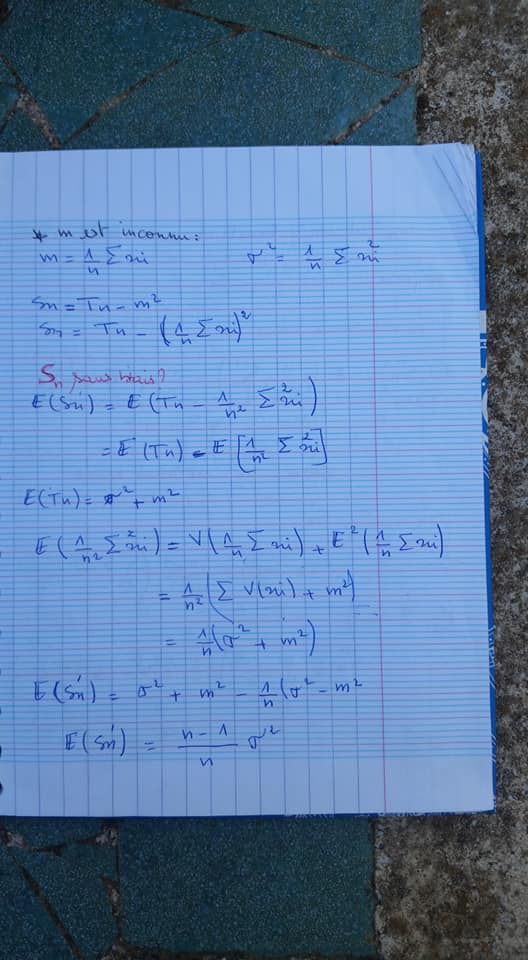 * m est inconnu:
m = 1/n Σ xi    σ² = 1/n Σ xi²
Sn = Tn - m²
Sn = Tn - (1/n Σ xi)²
Sn sans biais?
E(Sn') = E(Tn - 1/n² Σ² xi)
= E(Tn) - E[1/n² Σ² xi]
E(Tn) = σ² + m²
E(1/n² Σ² xi) = V(1/n Σ xi) + E²(1/n Σ xi)
= 1/n² (Σ V(xi) + m²)
= 1/n (σ² + m²)
E(Sn') = σ² + m² - 1/n (σ² - m²
E(Sn') = n-1/n σ²